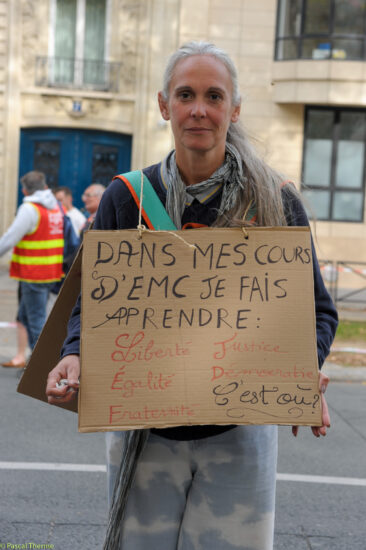 DANS MES COURS
D'EMC JE FAIS
APPRENDRE :
Liberté Justice
Égalité Démocratie
Fraternité C'est où ?
© Pascal Therme